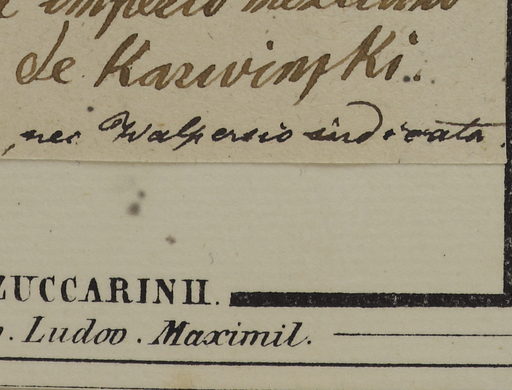 imperio mexicano
de Karwinski.
nec Walpersio indicata.
ZUCCARINII.
. Ludov. Maximil.